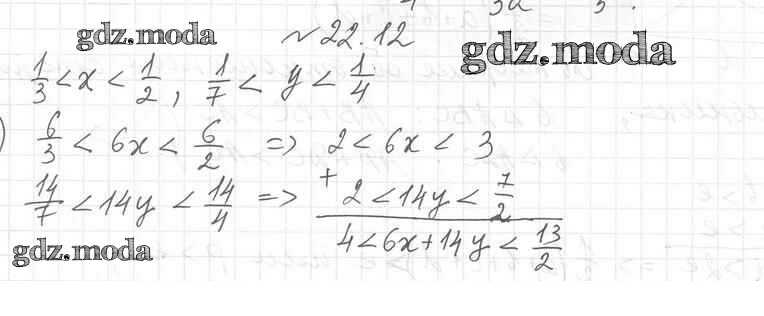 3a 3 .
gdz.moda № 22.12 gdz.moda
1/3 < x < 1/2, 1/7 < y < 1/4
) 6/3 < 6x < 6/2 => 2 < 6x < 3
14/7 < 14y < 14/4 => + 2 < 14y < 7/2
4 < 6x + 14y < 13/2
gdz.moda